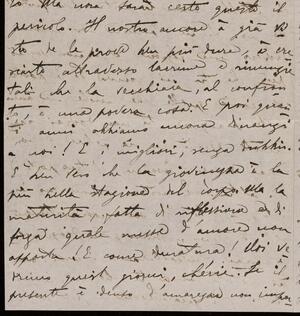 to. Ma non sarà certo questo il
pericolo. Il nostro amore à già vi
sto de le prove ben più dure, è cre
sciuto attraverso lacrime
tali che la vecchiaia, al confron
to, è una povera cosa. E poi quan
ti anni abbiamo ancora dinanzi
a noi! E i migliori, senza dubbio.
È ben vero che la giovinezza è la
più bella stagione del corpo. Ma la
maturità fatta di riflessione e di
forza quale messe d'amore non
apporta. E come duratura! Noi vi
vremo questi giorni, chérie. Se il
presente è denso d'amarezza non impor